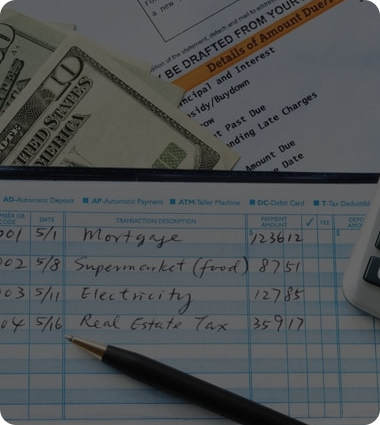 of the statement, detach and mail to address
BE DRAFTED FROM YOUR
Details of Amount Due/
ncipal and Interest
sidy/Buydown
row
t Past Due
nding Late Charges
Amount Due
e Date
10
UNITED STATES
AMERICA
AD-Automatic Deposit ■ AP-Automatic Payment ■ ATM-Teller Machine ■ DC-Debit Card ■ T-Tax Deductib
MBER OR CODE DATE TRANSACTION DESCRIPTION PAYMENT AMOUNT ✓ FEE DEPO AMO
001 5/1 Mortgage $1236 12 $
002 5/8 Supermarket (food) 87 51
003 5/11 Electricity 127 85
04 5/16 Real Estate Tax 359 17